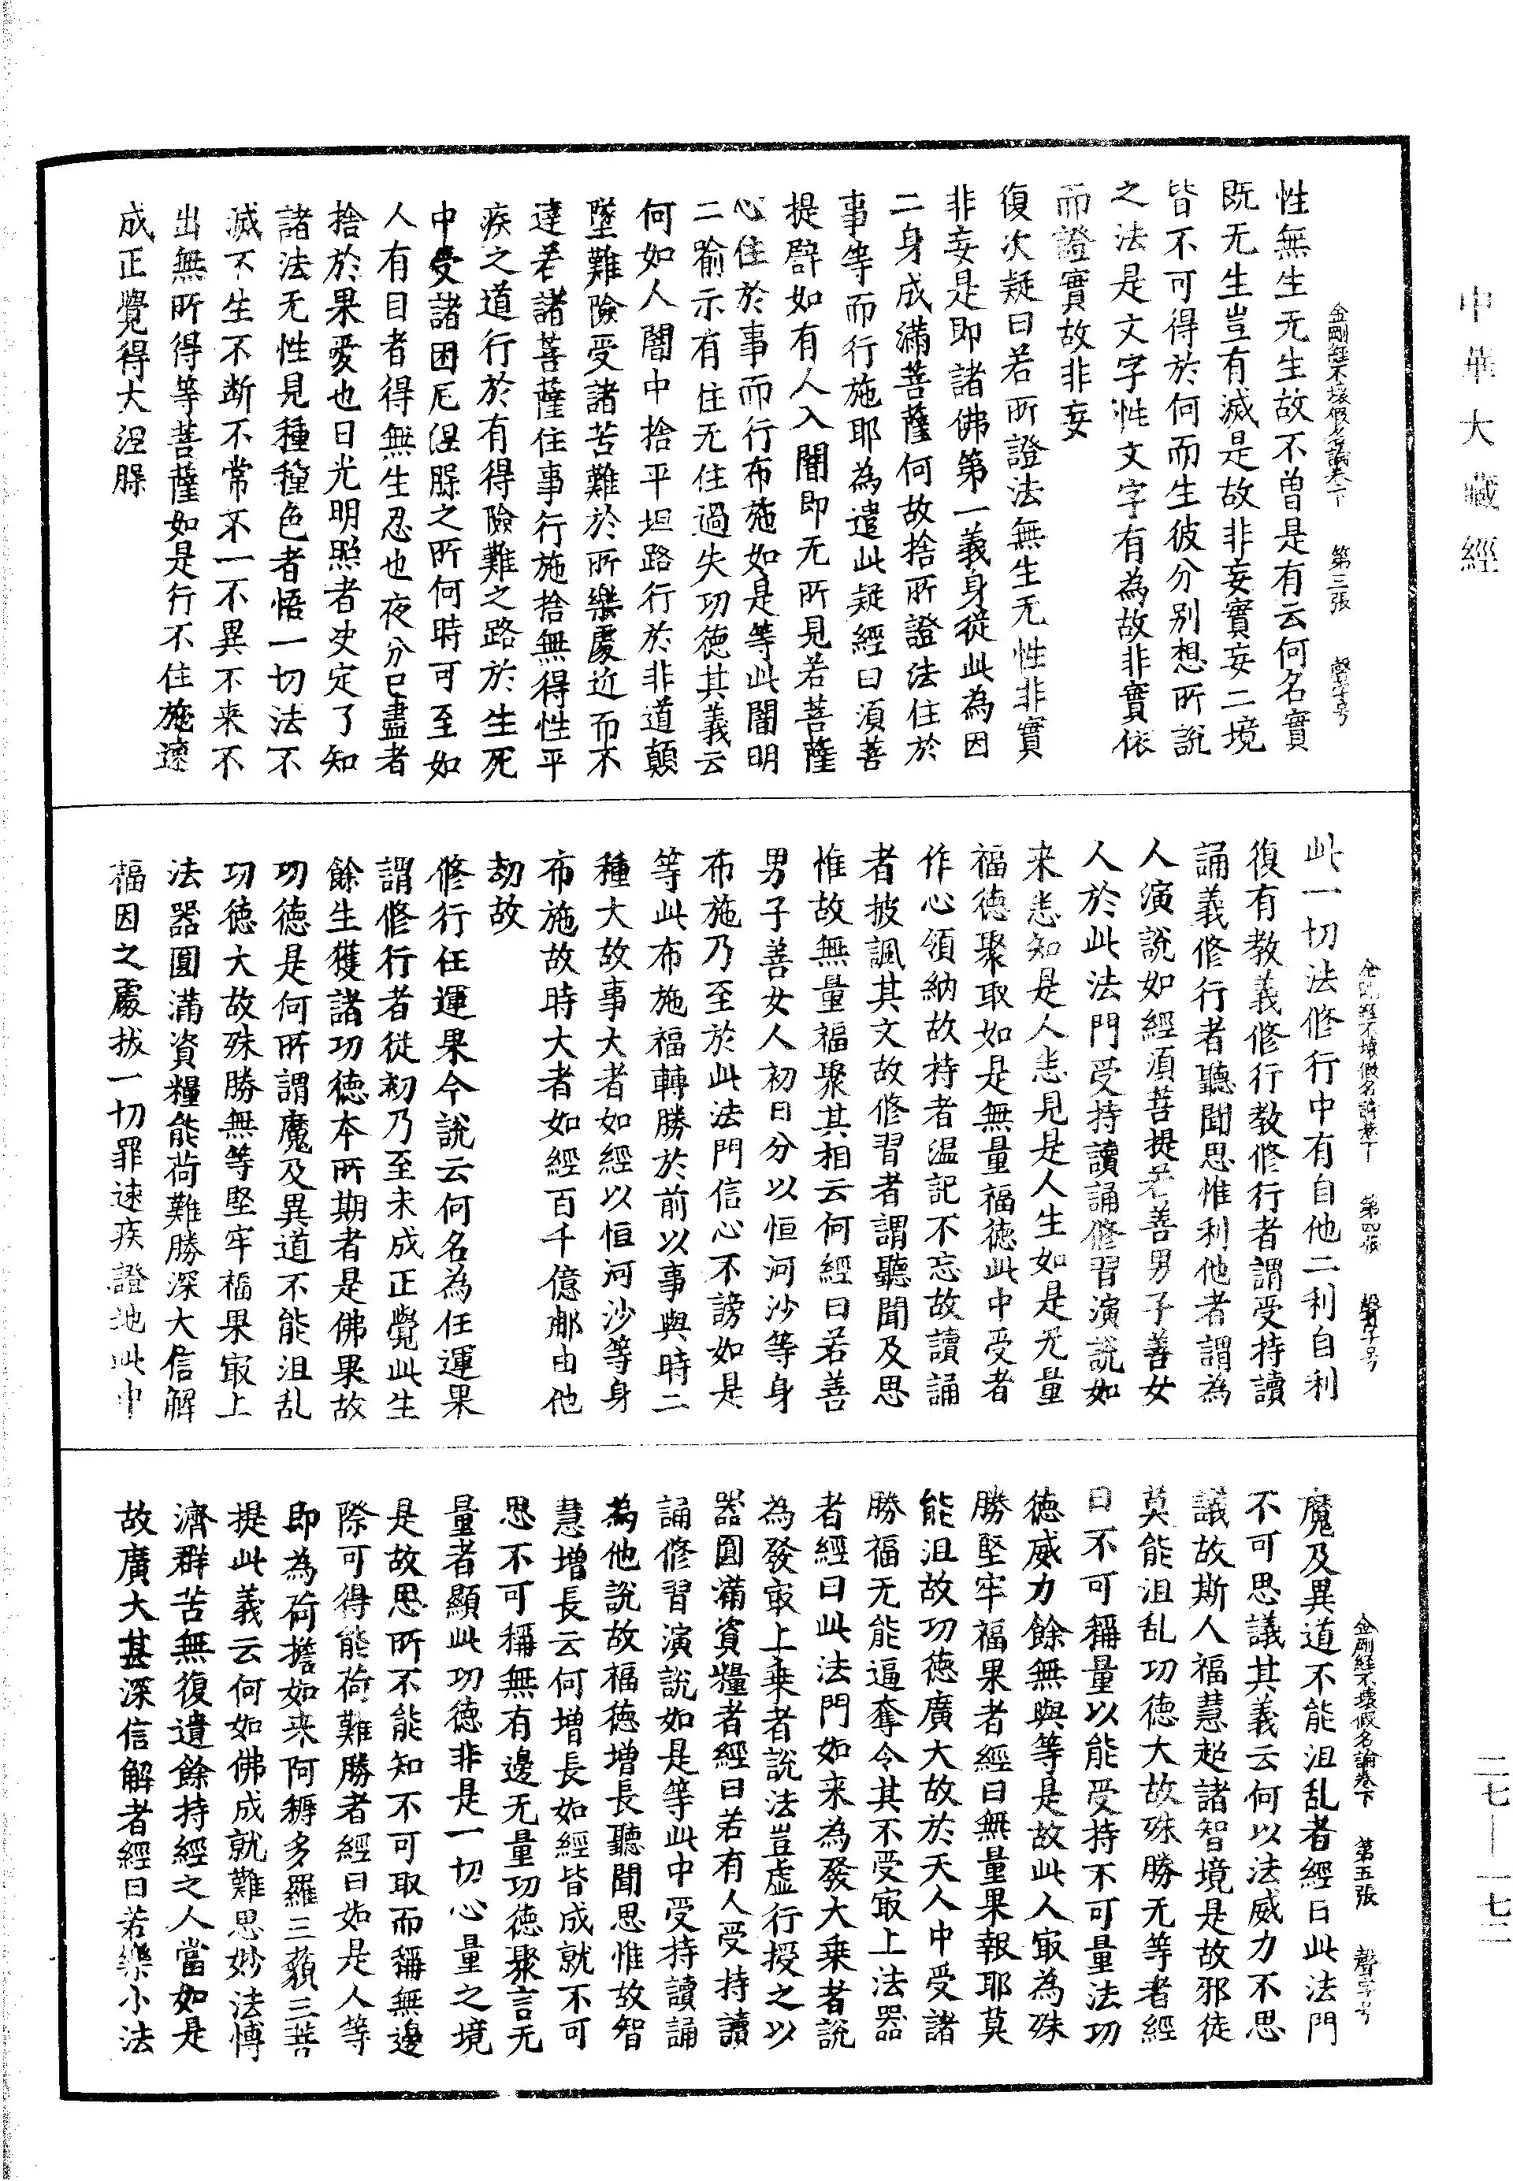 中華大藏經
金剛經不壞假名論卷下　第三張　聲字号
性無生无生故不曽是有云何名實
既无生豈有滅是故非妄實妄二境
皆不可得於何而生彼分别想所説
之法是文字性文字有為故非實依
而證實故非妄
復次疑曰若所證法無生无性非實
非妄是即諸佛第一義身從此為因
二身成滿菩薩何故捨所證法住於
事等而行施耶為遣此疑經曰湏菩
提譬如有人入闇即无所見若菩薩
心住於事而行布施如是等此闇明
二喻示有住无住過失功徳其義云
何如人闇中捨平坦路行於非道顛
墜難險受諸苦難於所樂䖏近而不
達若諸菩薩住事行施捨無得性平
疾之道行於有得險難之路於生死
中受諸困厄涅槃之所何時可至如
人有目者得無生忍也夜分已盡者
捨於果愛也日光明照者决定了知
諸法无性見種種色者悟一切法不
滅不生不断不常不一不異不来不
出無所得等菩薩如是行不住施速
成正覺得大涅槃
金剛經不壞假名論卷下　第四張　聲字号
此一切法修行中有自他二利自利
復有教義修行教修行者謂受持讀
誦義修行者聽聞思惟利他者謂為
人演説如經湏菩提若善男子善女
人於此法門受持讀誦修習演説如
来悉知是人悉見是人生如是无量
福德聚取如是無量福徳此中受者
作心領納故持者温記不忘故讀誦
者披諷其文故修習者謂聽聞及思
惟故無量福聚其相云何經曰若善
男子善女人初日分以恒河沙等身
布施乃至於此法門信心不謗如是
等此布施福轉勝於前以事與時二
種大故事大者如經以恒河沙等身
布施故時大者如經百千億那由他
劫故
修行任運果今說云何名為任運果
謂修行者從初乃至未成正覺此生
餘生獲諸功德本所期者是佛果故
功徳是何所謂魔及異道不能沮乱
功徳大故殊勝無等堅牢福果㝡上
法器圓滿資糧能荷難勝深大信解
福因之䖏拔一切罪速疾證地此中
金剛經不壞假名論卷下　第五張　聲字号
魔及異道不能沮乱者經曰此法門
不可思議其義云何以法威力不思
議故斯人福慧超諸智境是故邪徒
莫能沮乱功徳大故殊勝无等者經
曰不可稱量以能受持不可量法功
徳威力餘無與等是故此人㝡為殊
勝堅牢福果者經曰無量果報耶莫
能沮故功徳廣大故於天人中受諸
勝福无能逼奪令其不受㝡上法器
者經曰此法門如来為發大乗者説
為發㝡上乗者説法豈虚行授之以
器圓滿資糧者經曰若有人受持讀
誦修習演説如是等此中受持讀誦
為他説故福徳增長聽聞思惟故智
慧增長云何增長如經皆成就不可
思不可稱無有邊无量功德聚言无
量者顯此功徳非是一切心量之境
是故思所不能知不可取而稱無邊
際可得能荷難勝者經曰如是人等
即為荷擔如来阿耨多羅三藐三菩
提此義云何如佛成就難思妙法愽
濟群苦無復遺餘持經之人當如是
故廣大甚深信解者經曰若樂小法
二七—一七二